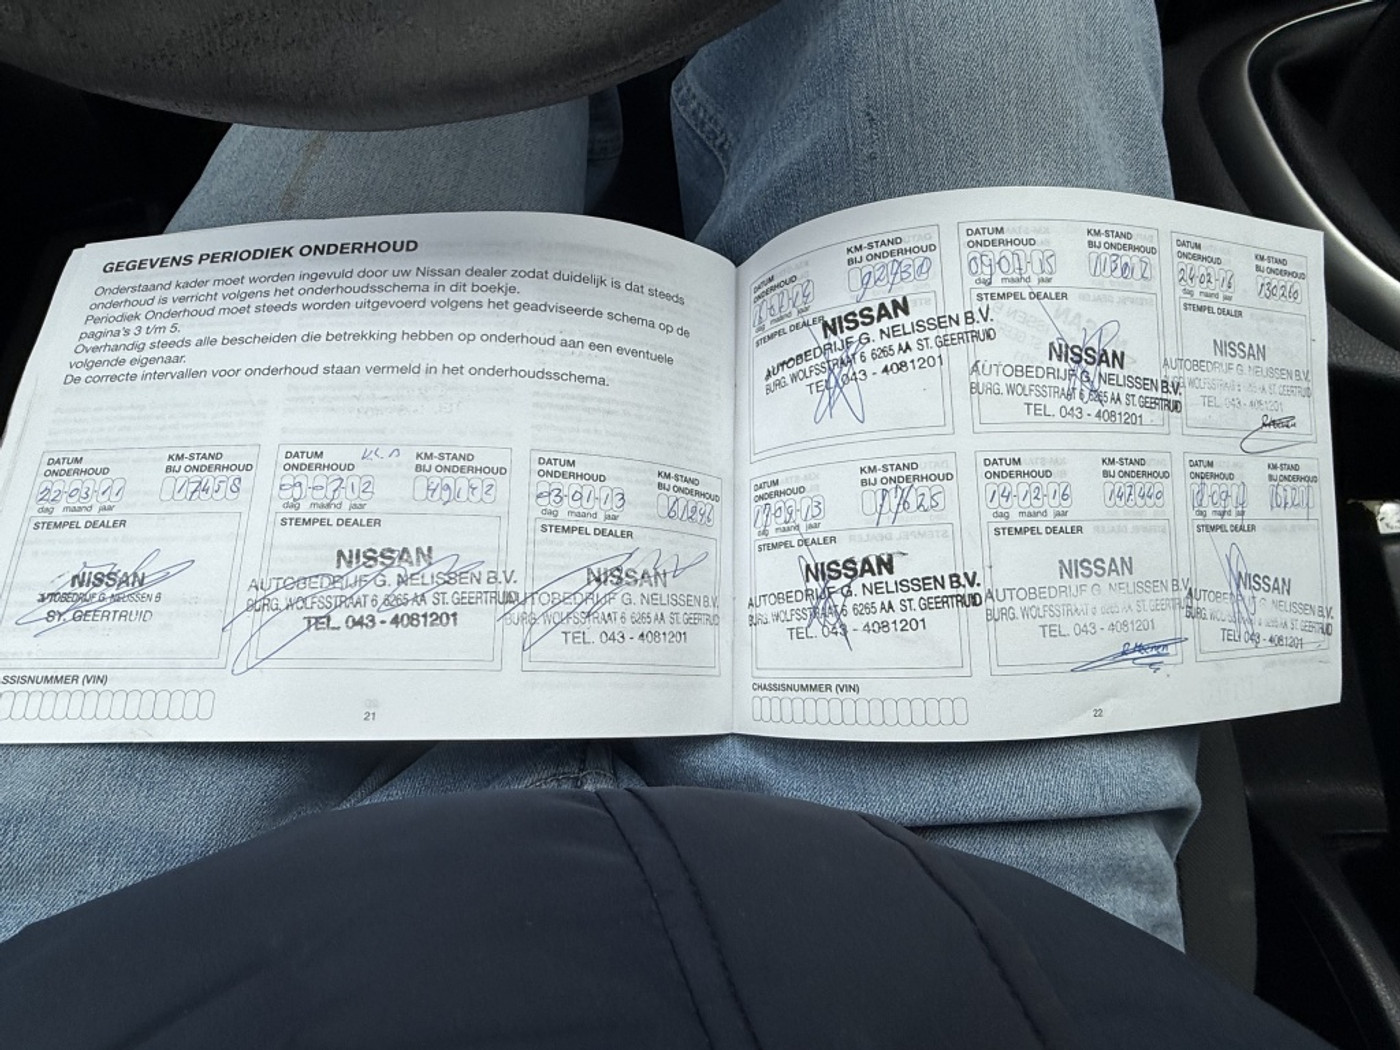 GEGEVENS PERIODIEK ONDERHOUD
Onderstaand kader moet worden ingevuld door uw Nissan dealer zodat duidelijk is dat steeds
onderhoud is verricht volgens het onderhoudsschema in dit boekje.
Periodiek Onderhoud moet steeds worden uitgevoerd volgens het geadviseerde schema op de
pagina's 3 t/m 5.
Overhandig steeds alle bescheiden die betrekking hebben op onderhoud aan een eventuele
volgende eigenaar.
De correcte intervallen voor onderhoud staan vermeld in het onderhoudsschema.
DATUM
ONDERHOUD
KM-STAND
BIJ ONDERHOUD
22-03-11
17458
dag maand jaar
STEMPEL DEALER
NISSAN
AUTOBEDRIJF G. NELISSEN B
ST. GEERTRUID
DATUM
ONDERHOUD
KM-STAND
BIJ ONDERHOUD
09-07-12
dag maand jaar
STEMPEL DEALER
NISSAN
AUTOBEDRIJF G. NELISSEN B.V.
BURG. WOLFSSTRAAT 6 6265 AA ST. GEERTRUID
TEL. 043 - 4081201
DATUM
ONDERHOUD
KM-STAND
BIJ ONDERHOUD
03-01-13
dag maand jaar
STEMPEL DEALER
NISSAN
AUTOBEDRIJF G. NELISSEN B.V.
BURG. WOLFSSTRAAT 6 6265 AA ST. GEERTRUID
TEL. 043 - 4081201
CHASSISNUMMER (VIN)
21
DATUM
ONDERHOUD
KM-STAND
BIJ ONDERHOUD
dag maand jaar
STEMPEL DEALER
NISSAN
AUTOBEDRIJF G. NELISSEN B.V.
BURG. WOLFSSTRAAT 6 6265 AA ST. GEERTRUID
TEL. 043 - 4081201
DATUM
ONDERHOUD
KM-STAND
BIJ ONDERHOUD
09-07-15
113012
dag maand jaar
STEMPEL DEALER
NISSAN
AUTOBEDRIJF G. NELISSEN B.V.
BURG. WOLFSSTRAAT 6 6265 AA ST. GEERTRUID
TEL. 043 - 4081201
DATUM
ONDERHOUD
KM-STAND
BIJ ONDERHOUD
24-02-16
130260
dag maand jaar
STEMPEL DEALER
NISSAN
AUTOBEDRIJF G. NELISSEN B.V.
BURG. WOLFSSTRAAT 6 6265 AA ST. GEERTRUID
TEL. 043 - 4081201
DATUM
ONDERHOUD
KM-STAND
BIJ ONDERHOUD
77625
dag maand jaar
STEMPEL DEALER
NISSAN
AUTOBEDRIJF G. NELISSEN B.V.
BURG. WOLFSSTRAAT 6 6265 AA ST. GEERTRUID
TEL. 043 - 4081201
DATUM
ONDERHOUD
KM-STAND
BIJ ONDERHOUD
14-12-16
147440
dag maand jaar
STEMPEL DEALER
NISSAN
AUTOBEDRIJF G. NELISSEN B.V.
BURG. WOLFSSTRAAT 6 6265 AA ST. GEERTRUID
TEL. 043 - 4081201
DATUM
ONDERHOUD
KM-STAND
BIJ ONDERHOUD
dag maand jaar
STEMPEL DEALER
NISSAN
AUTOBEDRIJF G. NELISSEN B.V.
BURG. WOLFSSTRAAT 6 6265 AA ST. GEERTRUID
TEL. 043 - 4081201
CHASSISNUMMER (VIN)
22